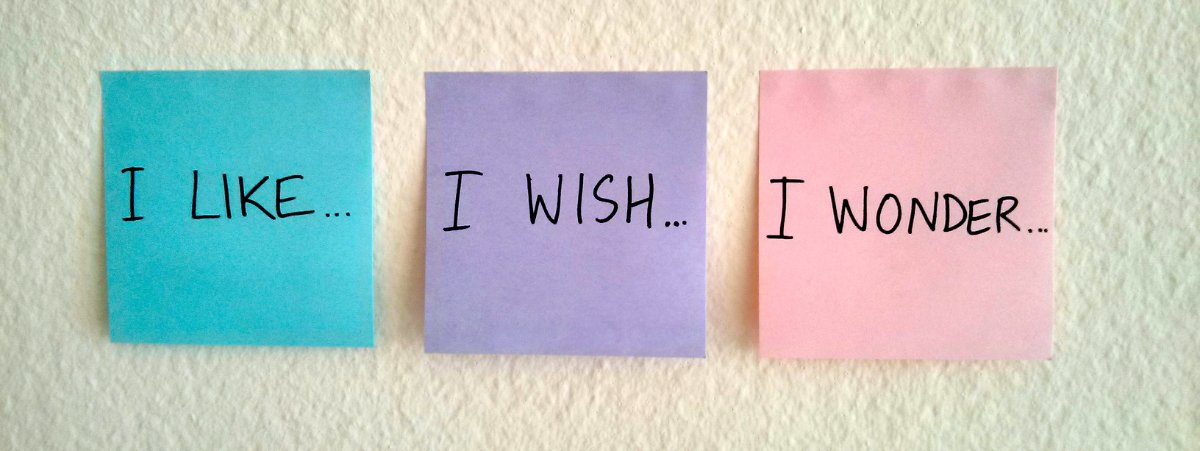 I LIKE...
I WISH...
I WONDER...